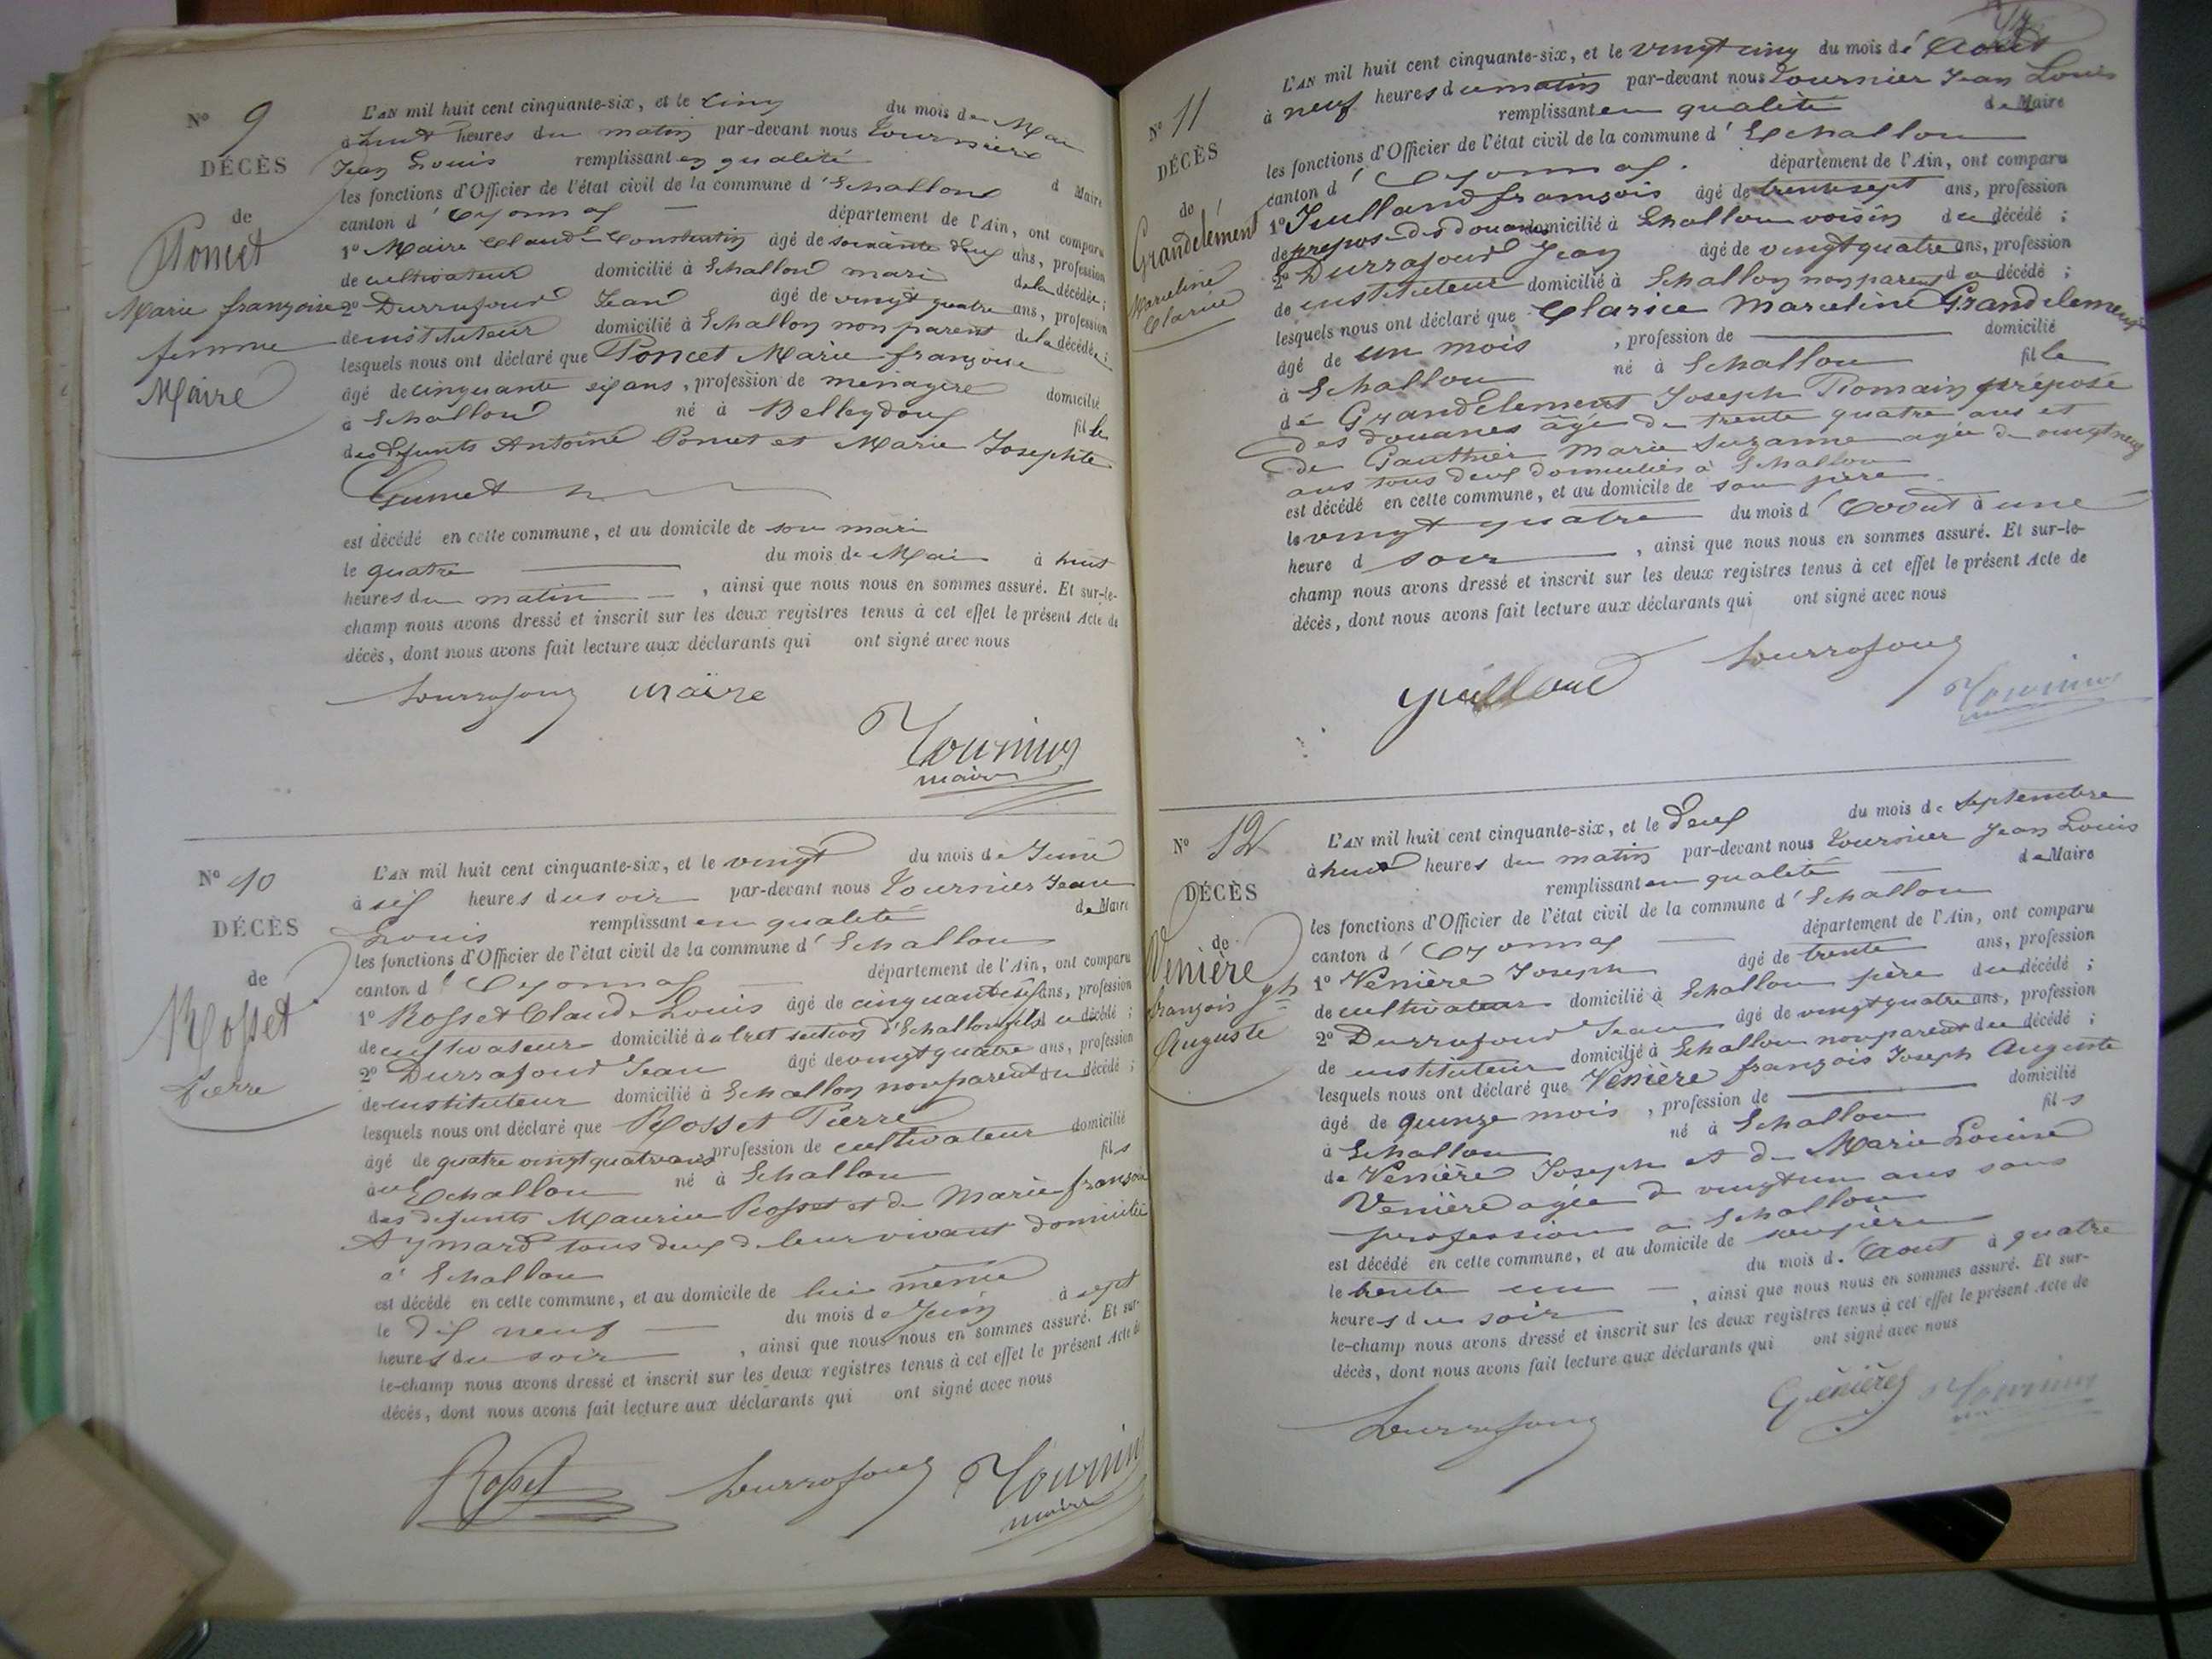 N° 9
DÉCÈS
de
Poncet
Marie françoise
femme
Maire
L'AN mil huit cent cinquante-six, et le cinq du mois de Mai
à huit heures du matin par-devant nous Tournier
Jean Louis remplissant en qualité d Maire
les fonctions d'Officier de l'état civil de la commune d'Echallon
canton d'Oyonnax département de l'Ain, ont comparu
1° Maire Claude Constantin âgé de soixante deux ans, profession
de cultivateur domicilié à Echallon mari de la décédée;
2° Durrafour Jean âgé de vingt quatre ans, profession
de instituteur domicilié à Echallon non parent de la décédée;
lesquels nous ont déclaré que Poncet Marie françoise
âgé de cinquante six ans, profession de ménagère domicilié
à Echallon né à Belleydoux fille
des défunts Antoine Poncet et Marie Josephte
Gumet
est décédé en cette commune, et au domicile de son mari
le quatre du mois de Mai à huit
heures du matin, ainsi que nous nous en sommes assuré. Et sur-le-
champ nous avons dressé et inscrit sur les deux registres tenus à cet effet le présent Acte de
décès, dont nous avons fait lecture aux déclarants qui ont signé avec nous
Durrafour maire
Tournier
maire
N° 10
DÉCÈS
de
Rosset
Pierre
L'AN mil huit cent cinquante-six, et le vingt du mois de Juin
à six heures du soir par-devant nous Tournier Jean
Louis remplissant en qualité de Maire
les fonctions d'Officier de l'état civil de la commune d'Echallon
canton d'Oyonnax département de l'Ain, ont comparu
1° Rosset Claude Louis âgé de cinquante six ans, profession
de cultivateur domicilié à section d'Echallon fils du décédé;
2° Durrafour Jean âgé de vingt quatre ans, profession
de instituteur domicilié à Echallon non parent du décédé;
lesquels nous ont déclaré que Rosset Pierre
âgé de quatre vingt quatre ans profession de cultivateur domicilié
à Echallon né à Echallon fils
des défunts Maurice Rosset et de Marie françoise
Aymard tous deux de leur vivant domiciliés
à Echallon
est décédé en cette commune, et au domicile de lui même
le dix neuf du mois de Juin à sept
heures du soir, ainsi que nous nous en sommes assuré. Et sur-
le-champ nous avons dressé et inscrit sur les deux registres tenus à cet effet le présent Acte de
décès, dont nous avons fait lecture aux déclarants qui ont signé avec nous
Rosset Durrafour Tournier
maire
N° 11
DÉCÈS
de
Grandclément
Marceline
Clarice
L'AN mil huit cent cinquante-six, et le vingt cinq du mois d'Août
à neuf heures du matin par-devant nous Tournier Jean Louis
remplissant en qualité de Maire
les fonctions d'Officier de l'état civil de la commune d'Echallon
canton d'Oyonnax. département de l'Ain, ont comparu
1° Juilland françois âgé de trente sept ans, profession
de préposé des douanes domicilié à Echallon voisin du décédé;
2° Durrafour Jean âgé de vingt quatre ans, profession
de instituteur domicilié à Echallon non parent du décédé;
lesquels nous ont déclaré que Clarice Marceline Grandclement
âgé de un mois, profession de domicilié
à Echallon né à Echallon fille
de Grandclement Joseph Romain préposé
des douanes âgé de trente quatre ans et
de Gauthier Marie Suzanne agée de vingt neuf
ans tous deux domiciliés à Echallon
est décédé en cette commune, et au domicile de son père
le vingt quatre du mois d'Août à une
heure d soir, ainsi que nous nous en sommes assuré. Et sur-le-
champ nous avons dressé et inscrit sur les deux registres tenus à cet effet le présent Acte de
décès, dont nous avons fait lecture aux déclarants qui ont signé avec nous
Durrafour
Tournier
N° 12
DÉCÈS
de
Venière
françois Jph
Auguste
L'AN mil huit cent cinquante-six, et le deux du mois de Septembre
à huit heures du matin par-devant nous Tournier Jean Louis
remplissant en qualité de Maire
les fonctions d'Officier de l'état civil de la commune d'Echallon
canton d'Oyonnax département de l'Ain, ont comparu
1° Venière Joseph âgé de trente ans, profession
de cultivateur domicilié à Echallon père du décédé;
2° Durrafour Jean âgé de vingt quatre ans, profession
de instituteur domicilié à Echallon non parent du décédé;
lesquels nous ont déclaré que Venière françois Joseph Auguste
âgé de quinze mois, profession de domicilié
à Echallon né à Echallon fils
de Venière Joseph et de Marie Louise
Venière agée de vingt un ans sans
profession à Echallon
est décédé en cette commune, et au domicile de son père
le trente un du mois d'Aout à quatre
heures du soir, ainsi que nous nous en sommes assuré. Et sur-
le-champ nous avons dressé et inscrit sur les deux registres tenus à cet effet le présent Acte de
décès, dont nous avons fait lecture aux déclarants qui ont signé avec nous
Durrafour Tournier